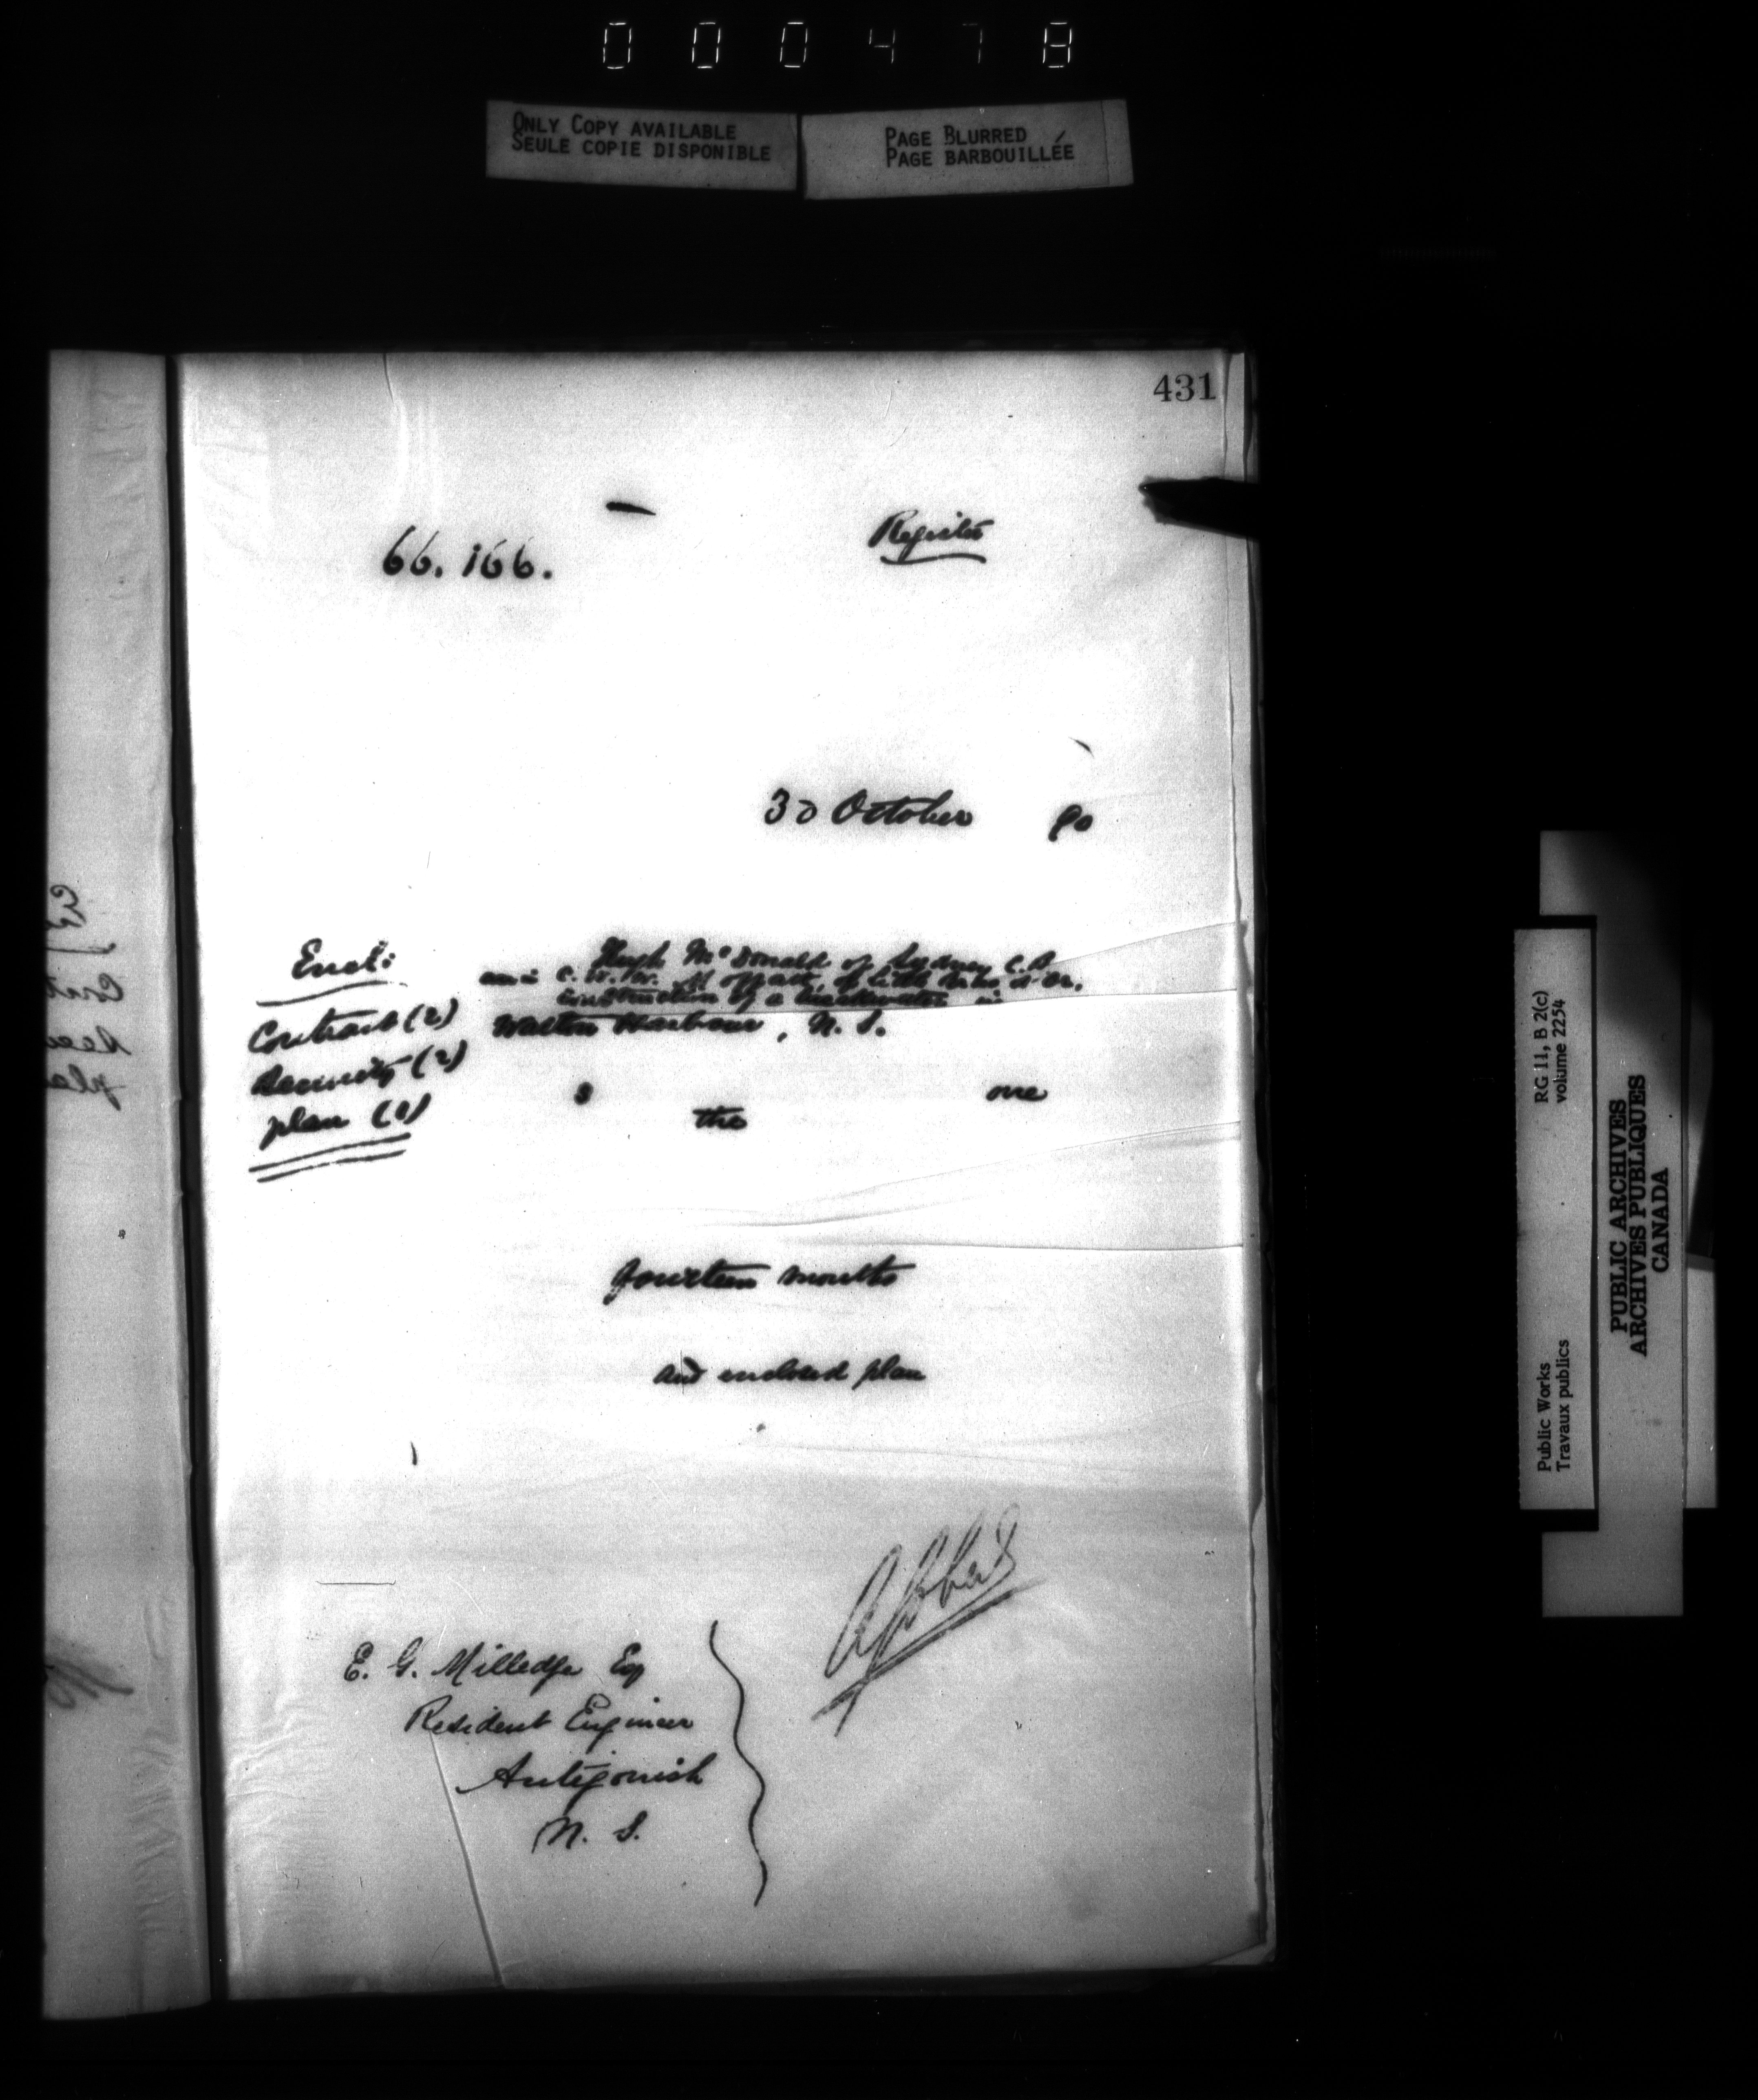 000478
ONLY COPY AVAILABLE
SEULE COPIE DISPONIBLE
PAGE BLURRED
PAGE BARBOUILLÉE
431
66.166.
Register
30 October 90
Encl:
Contract (2)
Security (2)
plan (1)
Hugh McDonald of Sydney C.B.
and C. W. W. Moffatt, of Little
construction of a breakwater in
Walton Harbour, N. S.
s one
the
fourteen months
and enclosed plan
E. G. Milledge Esq
Resident Engineer
Antigonish
N. S.
RG 11, B 2(c)
volume 2254
Public Works
Travaux publics
PUBLIC ARCHIVES
ARCHIVES PUBLIQUES
CANADA